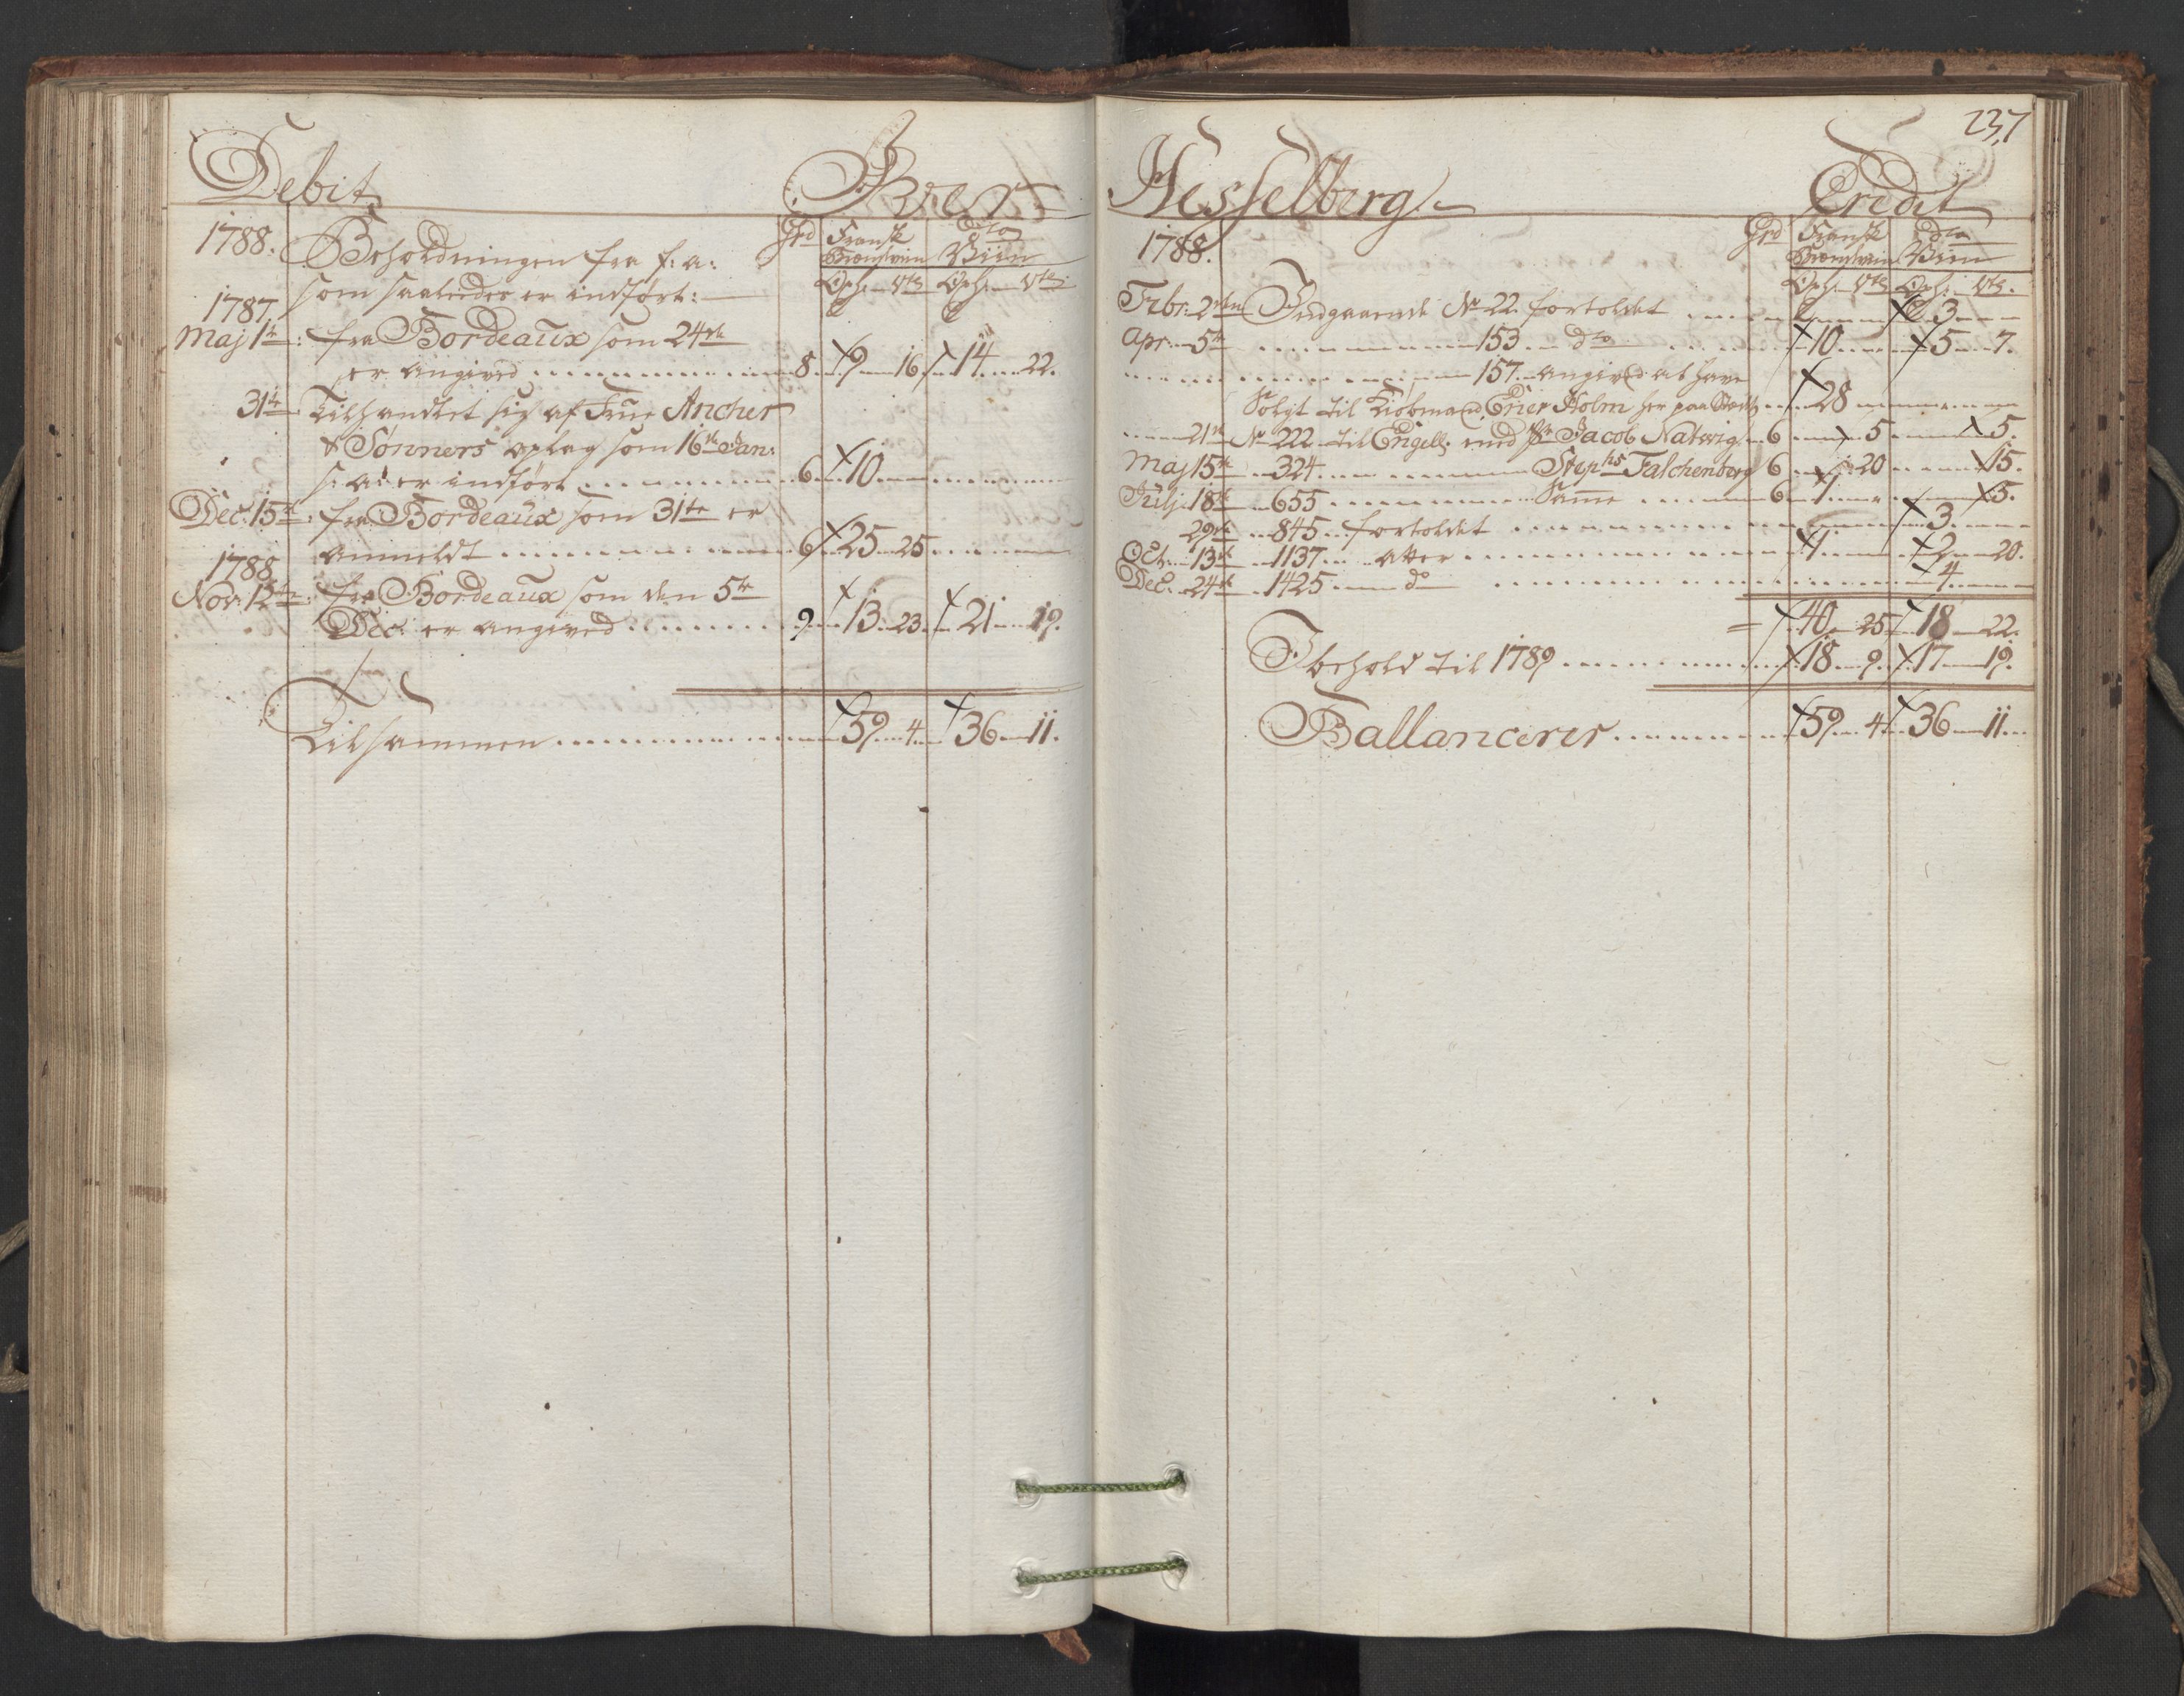 Debit
Iver
1788.
Beholdningen fra f: a:
Grd Fransk Brændeviin dto Viin
som saaledes er indført:
Oxh. Vtr Oxh. Vtr
1787
Maj 1te fra Bordeaux som 24de
er angived 8 9 16 14 22.
31te Tilhandlet sig af Frue Ancher
& Sønners oplag som 16de Jan:
s: a: er indført 6 10
Dec: 15de fra Bordeaux som 31te er
anmeldt 6 25 25
1788
Nov: 12te fra Bordeaux som den 5te
Dec: er angived 9 13 23 21 19.
Tilsammen 59 4 36 11.
237
Hesselberg
Credit
1788.
Grd Fransk Brændeviin dto Viin
Oxh. Vtr Oxh. Vtr.
Febr: 2den Indgaaende No 22 fortoldet 3
Apr 5te 153 dto 10 5 7.
157 angived at have
Solgt til Kiøbmand Erier Holm her paa Stædet 28
21te No 222 til Engell. med Jacob Natwig 6 5 5.
Maj 15de 324 Stephs Falchenberg 6 20 15.
Julj 18de 655 Samme 6 1 5.
29de 845 fortoldet 3.
Oct. 13de 1137 atter 1 2 20.
Dec. 24de 1425 do 4
= 40 25 18 22.
I behold til 1789 18 9. 17 19.
Ballancerer 59 4 36 11